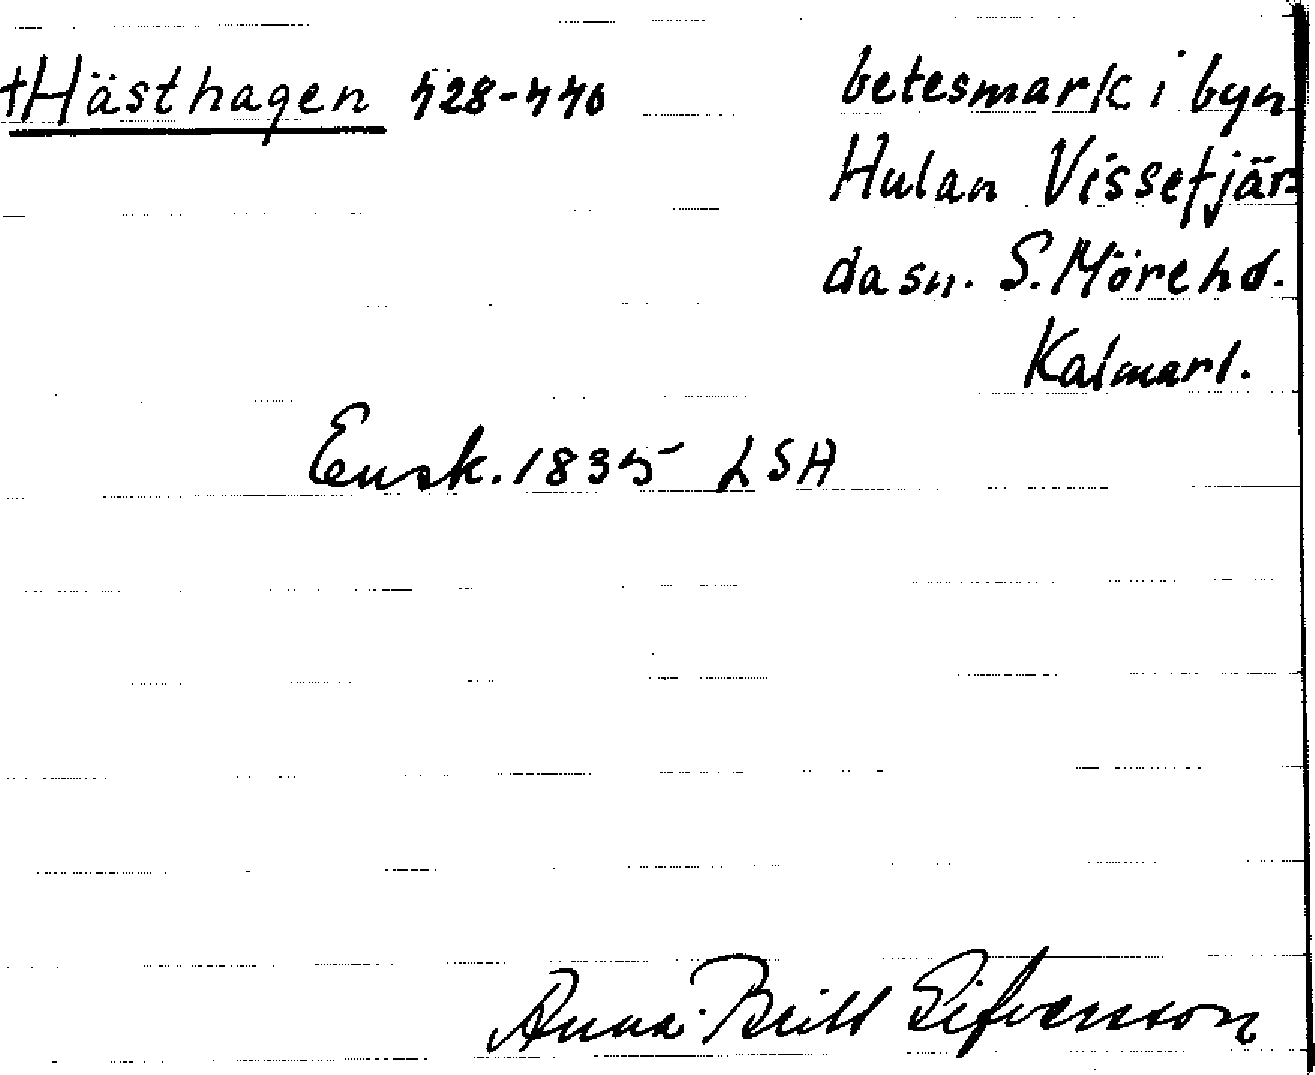 †Hästhagen 428-440 betesmark i byn
Hulan Vissefjär-
da sn. S. Möre hd.
Kalmar l.
Ensk. 1835 LSA
Anna-Britt Sifvensson